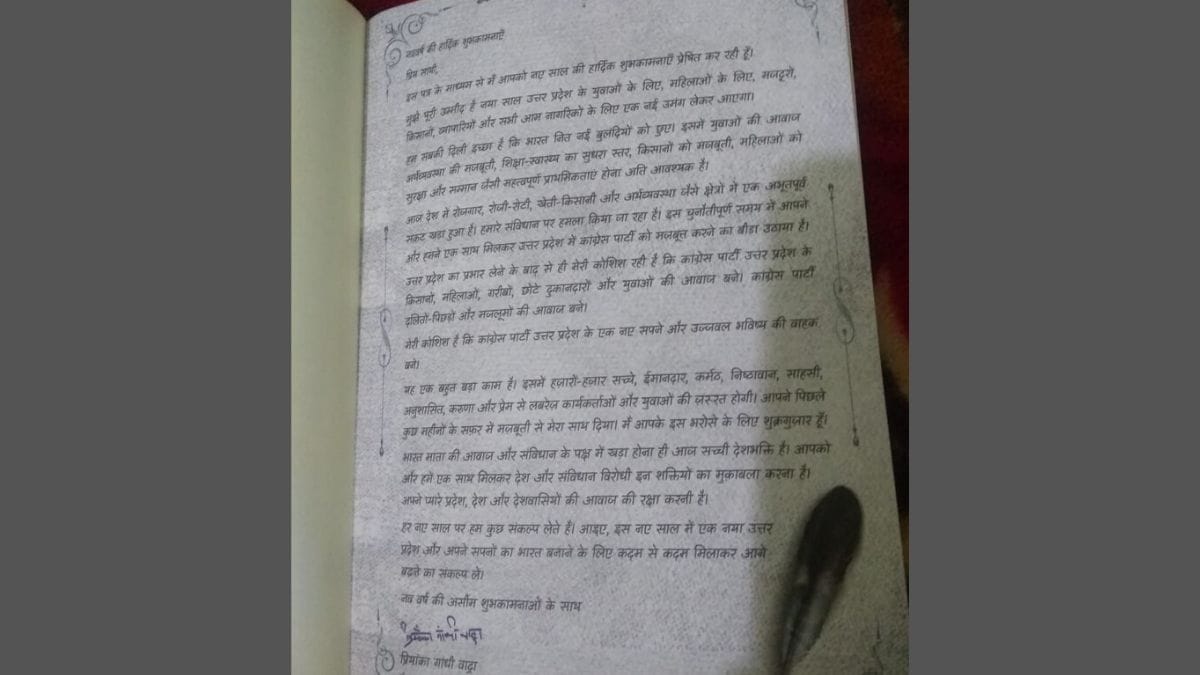 नववर्ष की हार्दिक शुभकामनाएँ
प्रिय साथी,
इस पत्र के माध्यम से मैं आपको नए साल की हार्दिक शुभकामनाएँ प्रेषित कर रही हूँ।
मुझे पूरी उम्मीद है नया साल उत्तर प्रदेश के युवाओं के लिए, महिलाओं के लिए, मजदूरों,
किसानों, व्यापारियों और सभी आम नागरिकों के लिए एक नई उमंग लेकर आएगा।
हम सबकी दिली इच्छा है कि भारत नित नई बुलंदियों को छुए। इसमें युवाओं की आवाज
अर्थव्यवस्था की मजबूती, शिक्षा-स्वास्थ्य का सुधरा स्तर, किसानों को मजबूती, महिलाओं को
सुरक्षा और सम्मान जैसी महत्वपूर्ण प्राथमिकताएं होना अति आवश्यक है।
आज देश में रोजगार, रोजी-रोटी, खेती-किसानी और अर्थव्यवस्था जैसे क्षेत्रों में एक अभूतपूर्व
संकट खड़ा हुआ है। हमारे संविधान पर हमला किया जा रहा है। इस चुनौतीपूर्ण समय में आपने
और हमने एक साथ मिलकर उत्तर प्रदेश में कांग्रेस पार्टी को मजबूत करने का बीड़ा उठाया है।
उत्तर प्रदेश का प्रभार लेने के बाद से ही मेरी कोशिश रही है कि कांग्रेस पार्टी उत्तर प्रदेश के
किसानों, महिलाओं, गरीबों, छोटे दुकानदारों और युवाओं की आवाज बने। कांग्रेस पार्टी
दलितों-पिछड़ों और मजलूमों की आवाज बने।
मेरी कोशिश है कि कांग्रेस पार्टी उत्तर प्रदेश के एक नए सपने और उज्जवल भविष्य की वाहक
बने।
यह एक बहुत बड़ा काम है। इसमें हज़ारों-हज़ार सच्चे, ईमानदार, कर्मठ, निष्ठावान, साहसी,
अनुशासित, करुणा और प्रेम से लबरेज़ कार्यकर्ताओं और युवाओं की ज़रूरत होगी। आपने पिछले
कुछ महीनों के सफ़र में मज़बूती से मेरा साथ दिया। मैं आपके इस भरोसे के लिए शुक्रगुज़ार हूँ।
भारत माता की आवाज और संविधान के पक्ष में खड़ा होना ही आज सच्ची देशभक्ति है। आपको
और हमें एक साथ मिलकर देश और संविधान विरोधी इन शक्तियों का मुकाबला करना है।
अपने प्यारे प्रदेश, देश और देशवासियों की आवाज की रक्षा करनी है।
हर नए साल पर हम कुछ संकल्प लेते हैं। आइए, इस नए साल में एक नया उत्तर
प्रदेश और अपने सपनों का भारत बनाने के लिए कदम से कदम मिलाकर आगे
बढ़ने का संकल्प लें।
नव वर्ष की असीम शुभकामनाओं के साथ
प्रियंका गांधी वाड्रा
प्रियंका गांधी वाड्रा